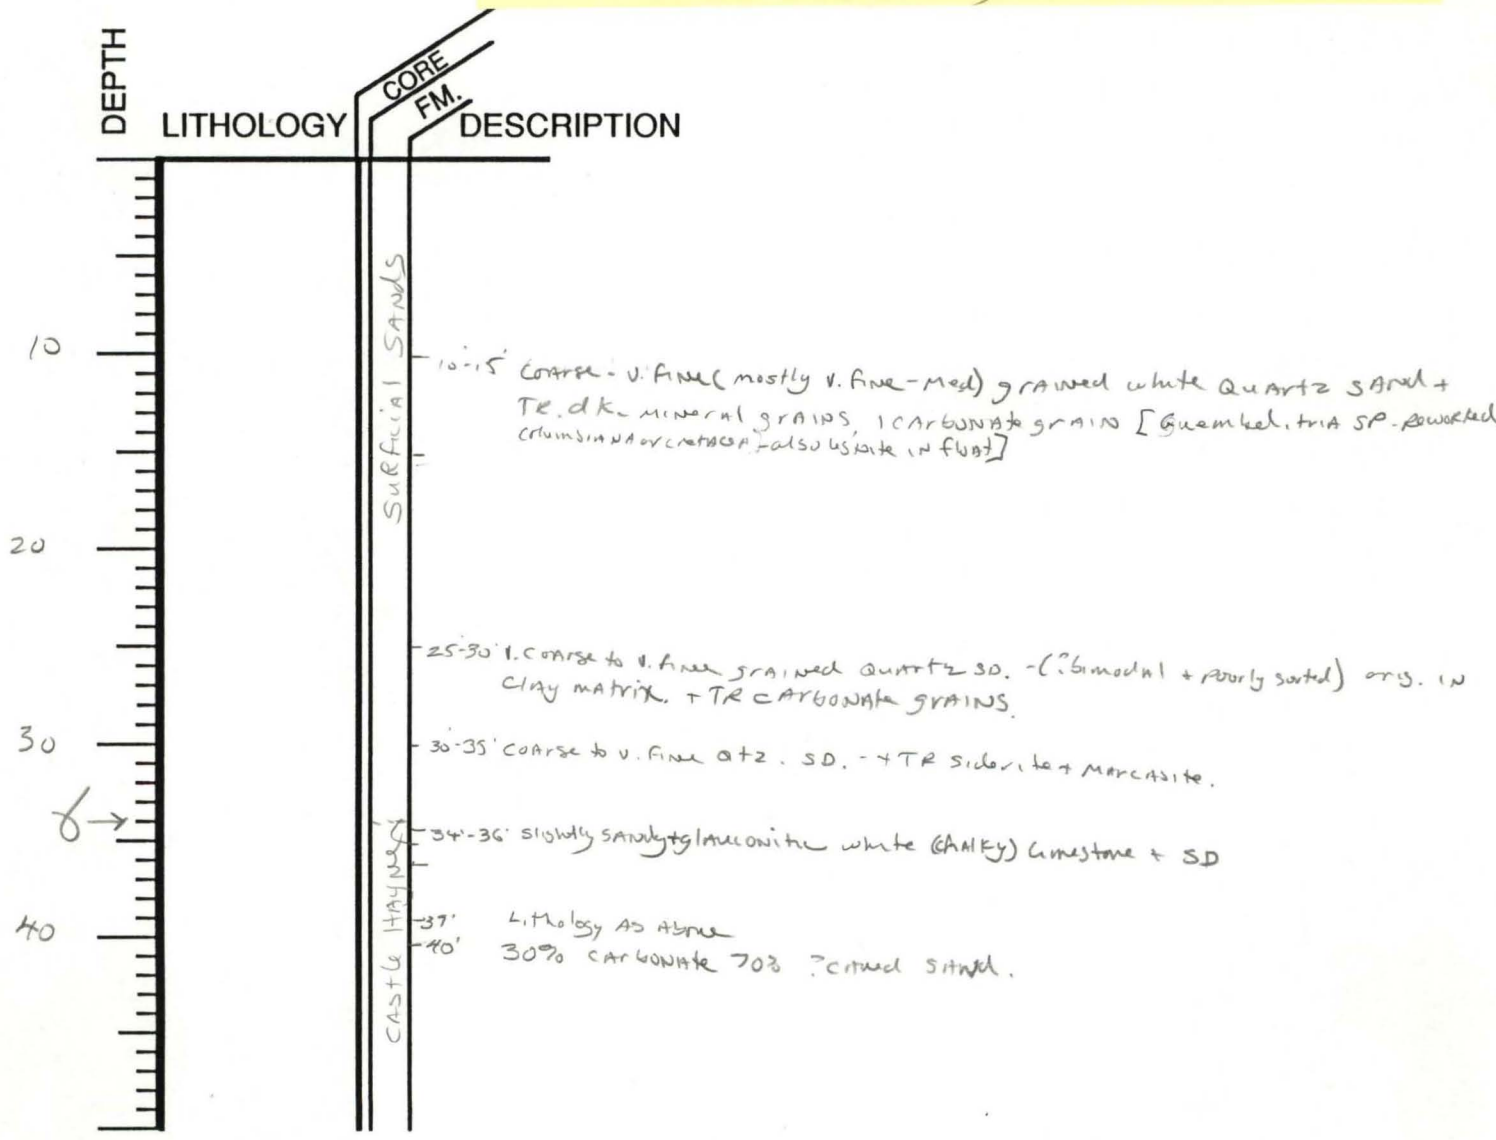 DEPTH
LITHOLOGY
CORE
FM.
DESCRIPTION
SURFICIAL SANDS
10
10'-15' COARSE - V. FINE (mostly V. FINE-MED) grained white QUARTZ SAND +
TR. dk. mineral grains, 1 CARBONATE grain [Guembelitria SP. - Reworked
also lignite in float]
20
25-30' V. COARSE to V. fine grained QUARTZ SD. - (?bimodal + poorly sorted) orig. IN
CLAY MATRIX. + TR CARBONATE grains.
30
30-35' COARSE to V. FINE QTZ. SD. - + TR Siderite + MARCASITE.
γ→
CASTLE HAYNE
34'-36' slightly SANDy+glauconitic white (chALKy) Limestone + SD
39' Lithology AS Above
40
40' 30% CARBONATE 70% ?caved SAND.